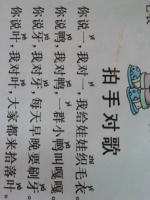 拍手对歌
你说一，我对一，我给娃娃织毛衣。
你说鸭，我对鸭，一群小鸭叫嘎嘎。
你说牙，我对牙，每天早晚要刷牙。
你说叶，我对叶，大家都来拾落叶。